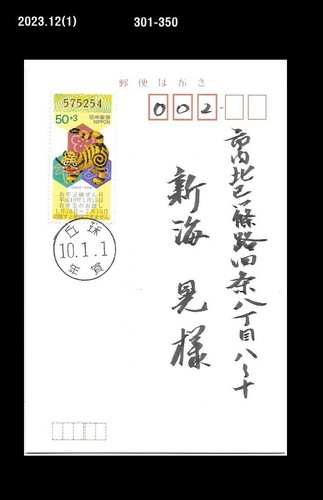 2023.12(1) 301-350
郵便はがき
575254
50+3
日本郵便
NIPPON
お年玉抽せん日
平成10年1月15日
お年玉のお渡し
002-
丘珠
10.1.1
年賀
市内北 一條 八丁目八
新海 晃 様